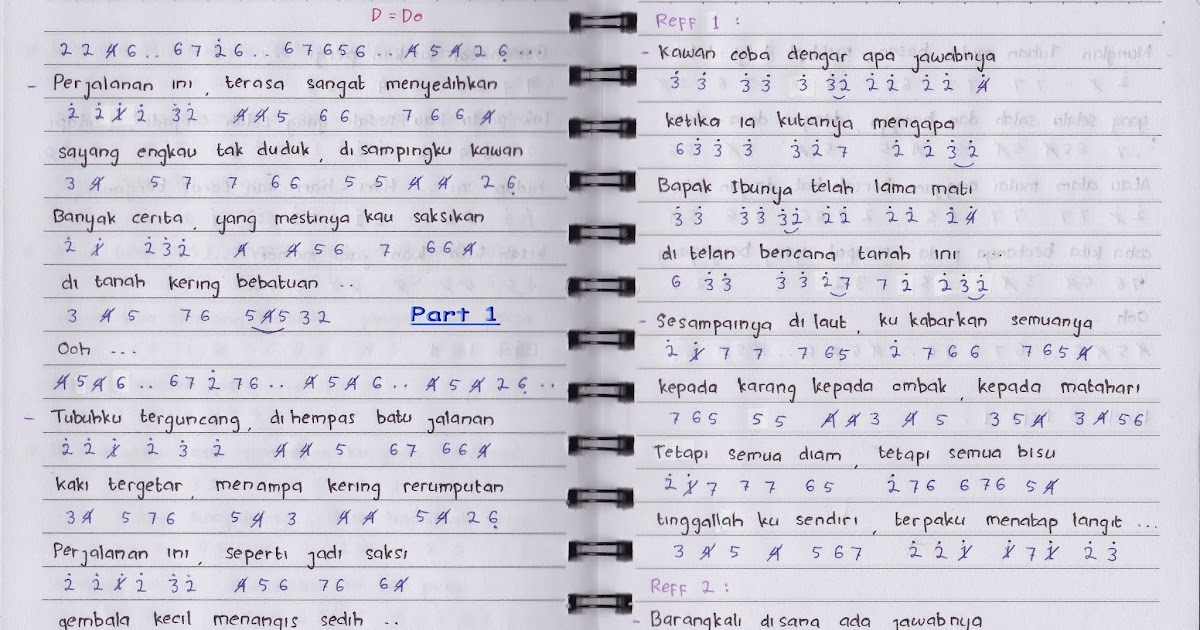 D = Do
2 2 4 6 . . 6 7 2 6 . . 6 7 6 5 6 . . 4 5 4 2 6 . . .
- Perjalanan ini, terasa sangat menyedihkan
2 2 1 2 3 2 4 4 5 6 6 7 6 6 4
sayang engkau tak duduk, di sampingku kawan
3 4 5 7 7 6 6 5 5 4 4 2 6
Banyak cerita, yang mestinya kau saksikan
2 1 2 3 2 4 4 5 6 7 6 6 4
di tanah kering bebatuan . .
3 4 5 7 6 5 4 5 3 2 Part 1
Ooh ...
4 5 4 6 . . 6 7 2 7 6 . . 4 5 4 6 . . 4 5 4 2 6 . .
- Tubuhku terguncang, di hempas batu jalanan
2 2 1 2 3 2 4 4 5 6 7 6 6 4
kaki tergetar, menampa kering rerumputan
3 4 5 7 6 5 4 3 4 4 5 4 2 6
Perjalanan ini, seperti jadi saksi
2 2 1 2 3 2 4 5 6 7 6 6 4
gembala kecil menangis sedih . .
Reff 1 :
- Kawan coba dengar apa jawabnya
3 3 3 3 3 3 2 2 2 2 2 4
ketika ia kutanya mengapa
6 3 3 3 3 2 7 2 2 3 2
Bapak Ibunya telah lama mati
3 3 3 3 3 2 2 2 2 2 2 4
di telan bencana tanah ini ...
6 3 3 3 3 2 7 7 2 2 3 2
- Sesampainya di laut, ku kabarkan semuanya
2 1 7 7 7 6 5 2 7 6 6 7 6 5 4
kepada karang kepada ombak, kepada matahari
7 6 5 5 5 4 4 3 4 5 3 5 4 3 4 5 6
Tetapi semua diam, tetapi semua bisu
2 1 7 7 7 6 5 2 7 6 6 7 6 5 4
tinggallah ku sendiri, terpaku menatap langit ...
3 4 5 4 5 6 7 2 2 1 1 7 1 2 3
Reff 2 :
- Barangkali di sana ada jawabnya